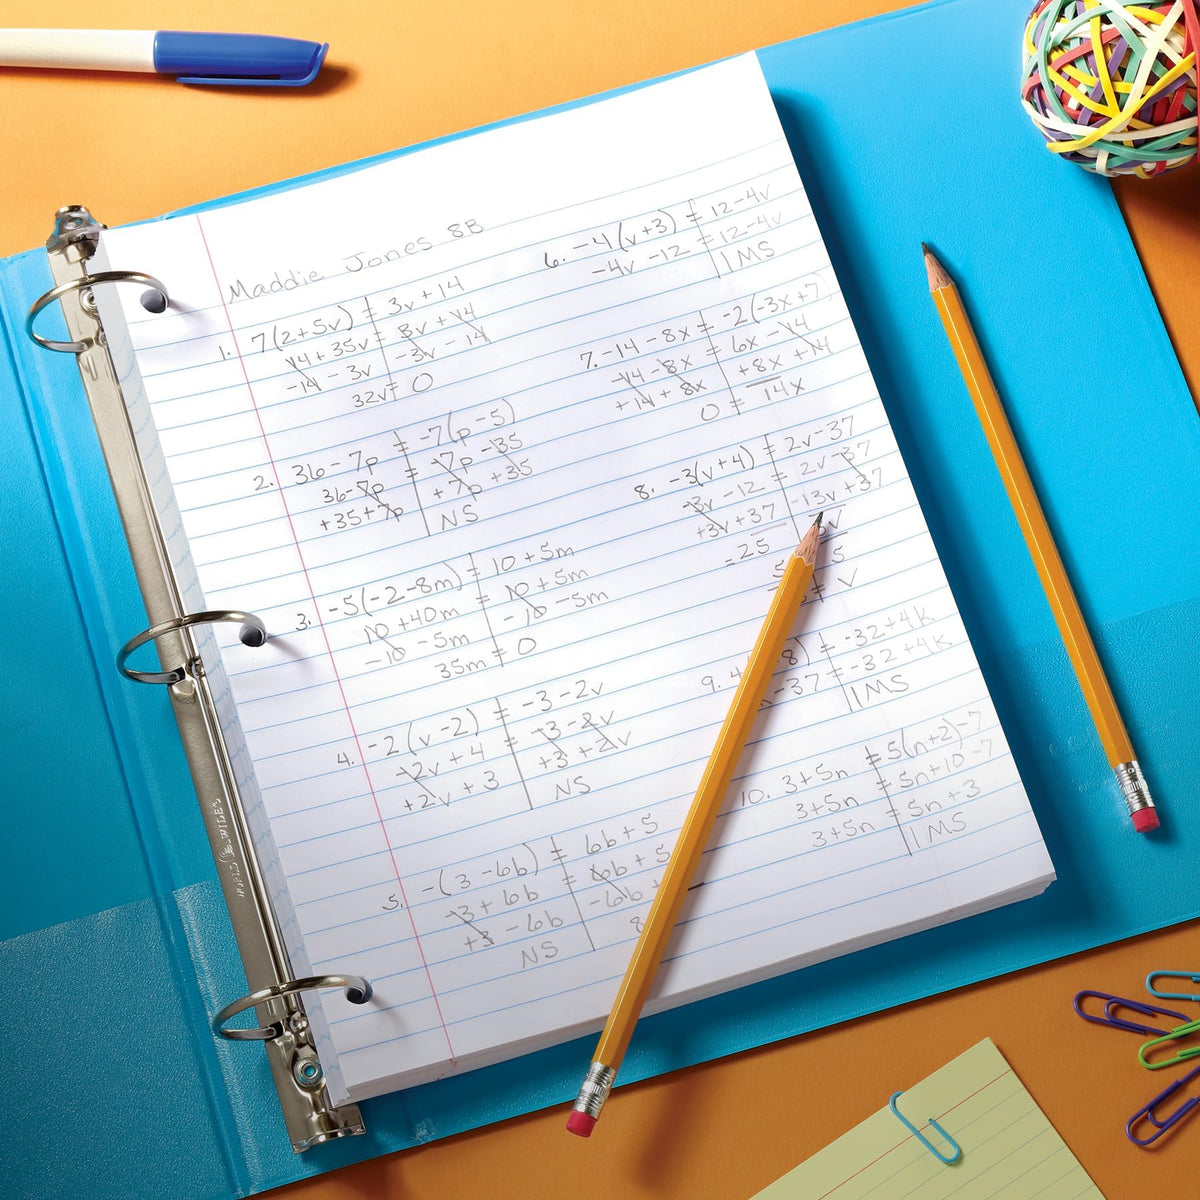 Maddie Jones 8B
1. 7(2+5v) = 3v + 14
14 + 35v = 3v + 14
-14 - 3v -3v - 14
32v = 0
2. 36 - 7p = -7(p - 5)
36 - 7p = -7p - 35
+35 + 7p + 7p + 35
NS
3. -5(-2-8m) = 10 + 5m
10 + 40m = 10 + 5m
-10 - 5m -10 - 5m
35m = 0
4. -2(v-2) = -3-2v
-2v + 4 = -3 - 2v
+2v + 3 +3 + 2v
NS
5. -(3-6b) = 6b + 5
-3 + 6b = 6b + 5
+3 - 6b -6b +
NS 8
6. -4(v+3) = 12-4v
-4v - 12 = 12-4v
1 MS
7. -14 - 8x = -2(-3x+7)
-14 - 8x = 6x - 14
+14 + 8x +8x + 14
0 = 14x
8. -3(v+4) = 2v-37
-3v - 12 = 2v-37
+3v + 37 -13v + 37
= 25
5 5
= v
9. 4 8) = -32+4k
-37 = -32+4k
1 MS
10. 3+5n = 5(n+2)-7
3+5n = 5n+10-7
3+5n = 5n+3
1 MS